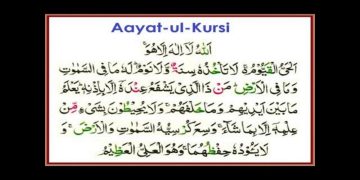 Aayat-ul-Kursi
اَللّٰهُ لَاۤ اِلٰهَ اِلَّا هُوَ
اَلْحَیُّ الْقَیُّوْمُ لَا تَاْخُذُهٗ سِنَةٌ وَّلَا نَوْمٌ لَهٗ مَا فِی السَّمٰوٰتِ
وَمَا فِی الْاَرْضِ مَنْ ذَا الَّذِیْ یَشْفَعُ عِنْدَهٗۤ اِلَّا بِاِذْنِهٖ یَعْلَمُ
مَا بَیْنَ اَیْدِیْهِمْ وَمَا خَلْفَهُمْ وَلَا یُحِیْطُوْنَ بِشَیْءٍ مِّنْ
عِلْمِهٖۤ اِلَّا بِمَا شَآءَ وَسِعَ كُرْسِیُّهُ السَّمٰوٰتِ وَالْاَرْضَ وَ
لَا یَـُٔوْدُهٗ حِفْظُهُمَا وَهُوَ الْعَلِیُّ الْعَظِیْمُ